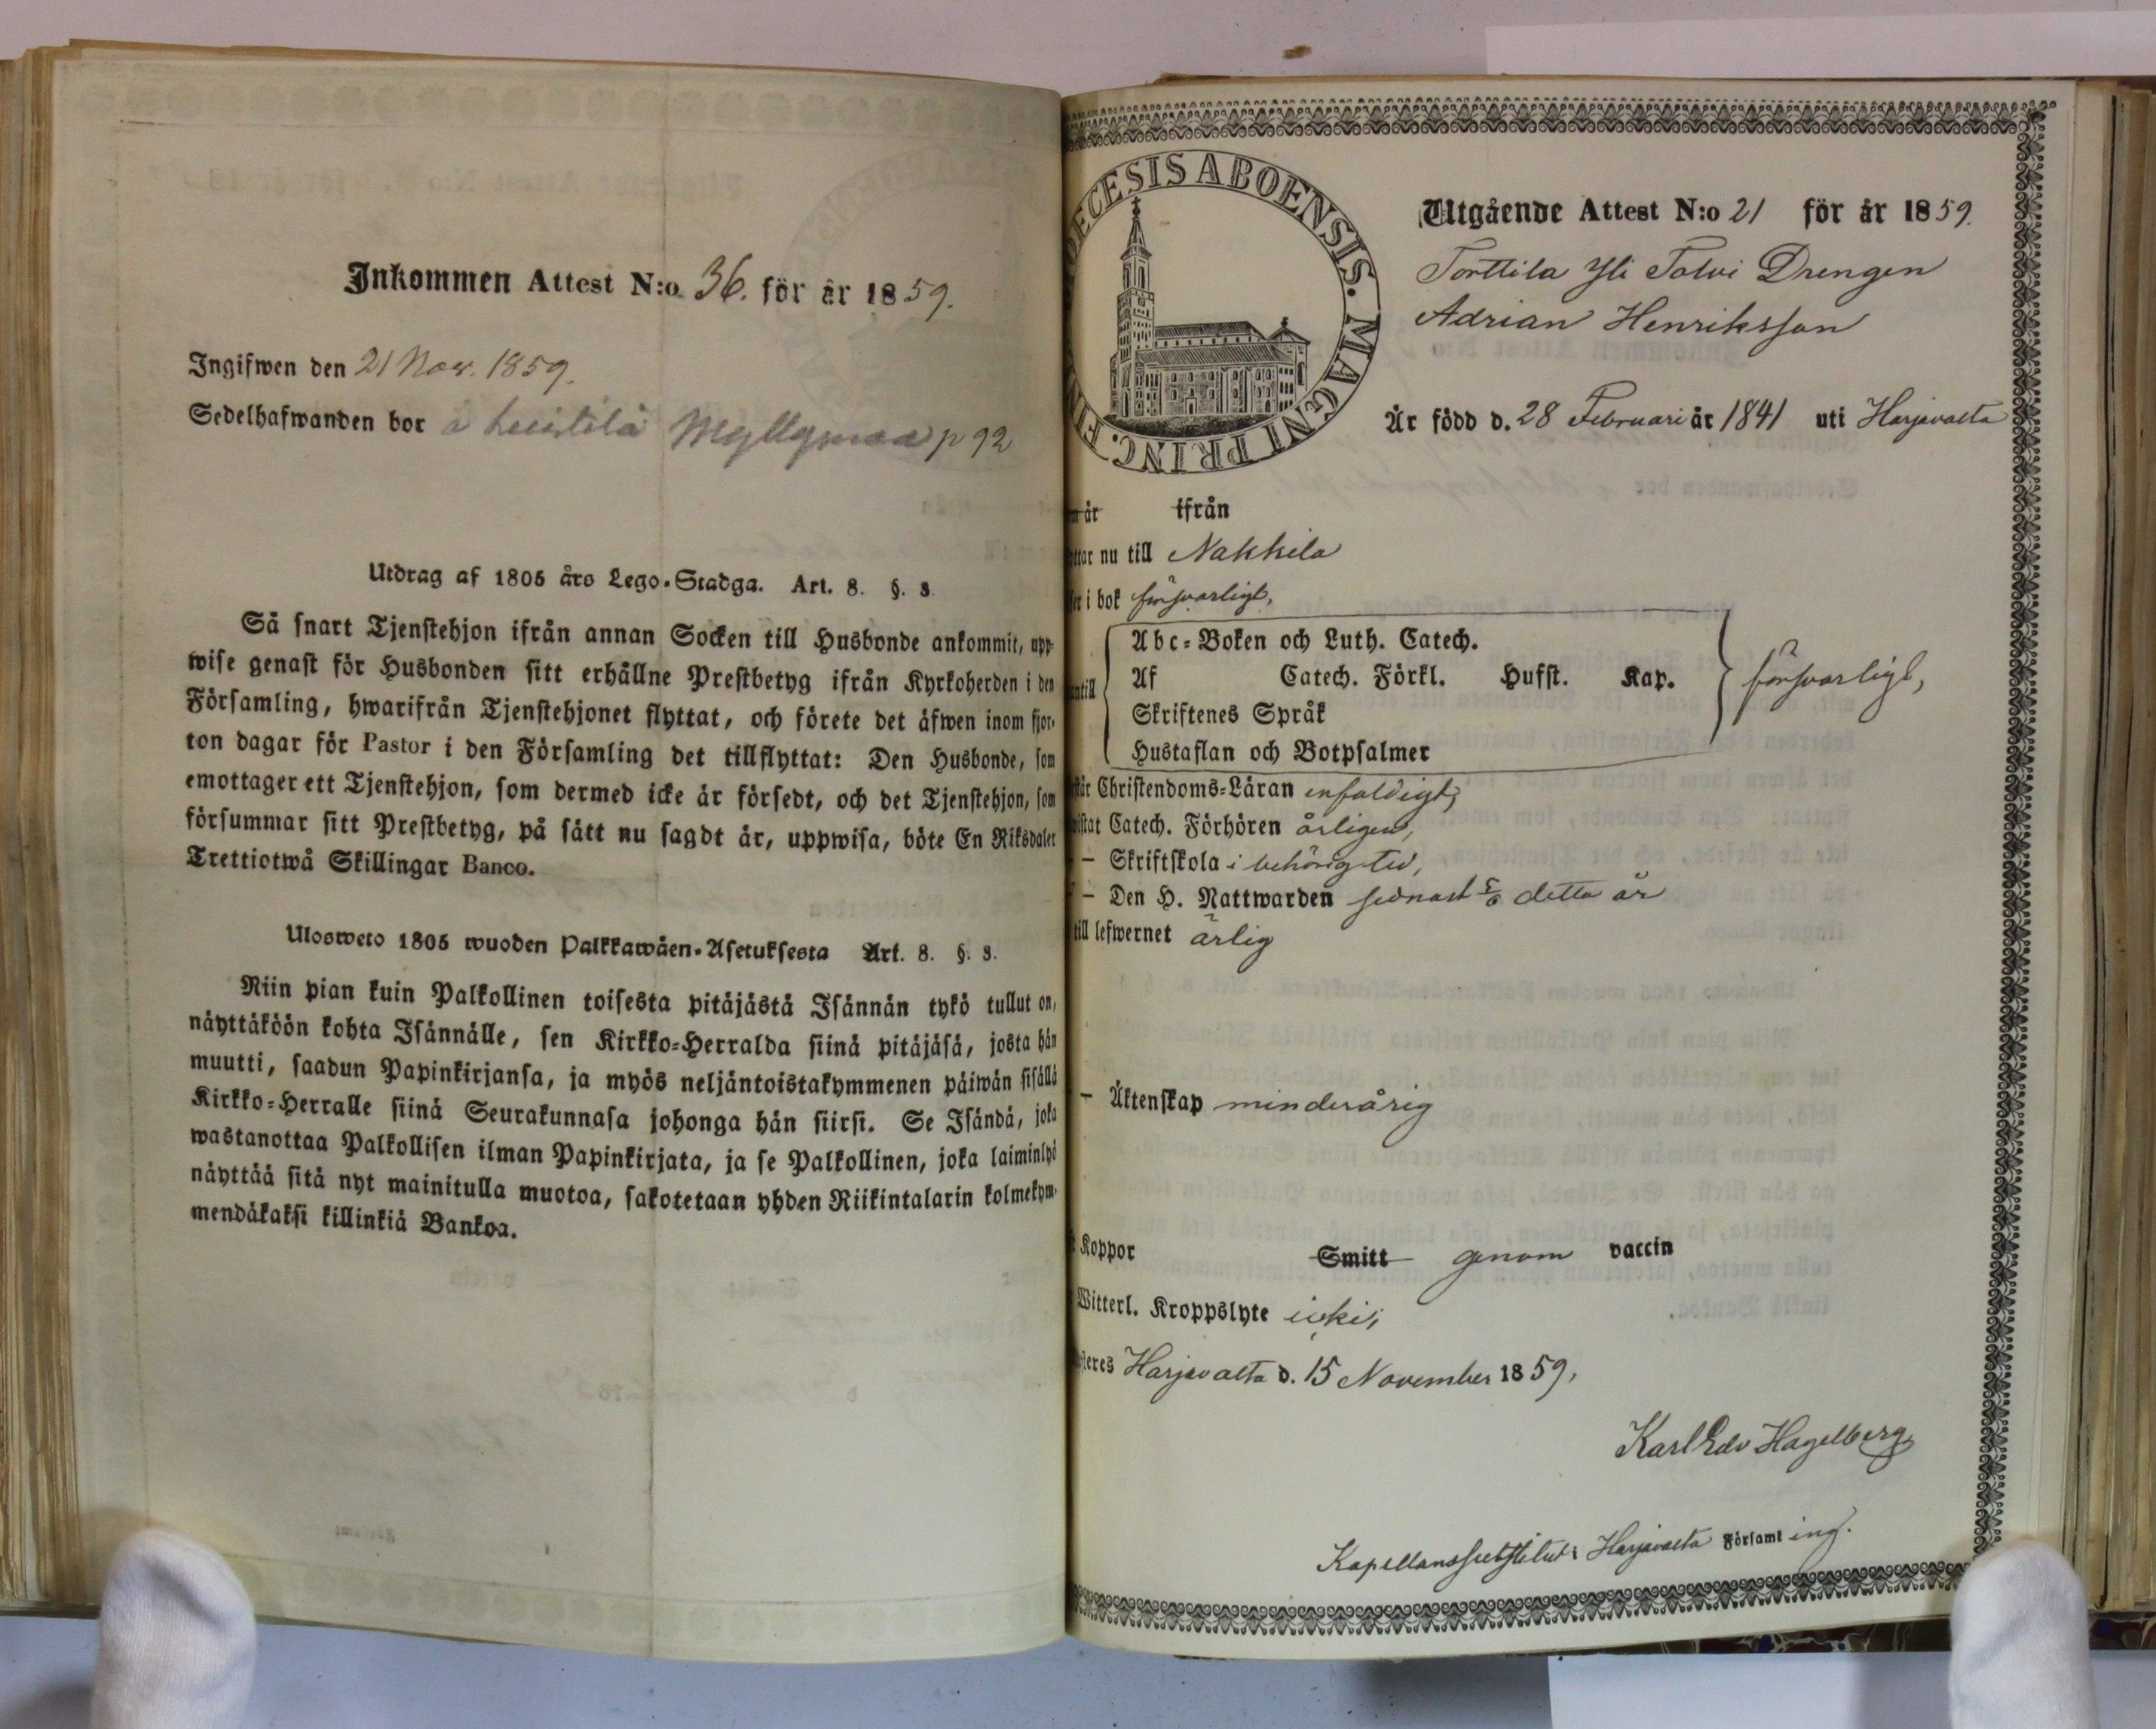 Inkommen Attest N:o 36. för år 1859.
Ingifwen den 21 Nov. 1859.
Sedelhafwanden bor å Leistilä Myllymaa p 92
Utdrag af 1805 års Lego-Stadga. Art. 8. §. 3.
Så snart Tjenstehjon ifrån annan Socken till Husbonde ankommit, upp-
wise genast för Husbonden sitt erhållne Prestbetyg ifrån Kyrkoherden i den
Församling, hwarifrån Tjenstehjonet flyttat, och förete det äfwen inom fjor-
ton dagar för Pastor i den Församling det tillflyttat: Den Husbonde, som
emottager ett Tjenstehjon, som dermed icke är försedt, och det Tjenstehjon, som
försummar sitt Prestbetyg, på sätt nu sagdt är, uppwisa, böte En Riksdaler
Trettiotwå Skillingar Banco.
Ulosweto 1805 wuoden Palkkawäen-Asetuksesta Art. 8. §. 3.
Niin pian kuin Palkollinen toisesta pitäjästä Isännän tykö tullut on,
näyttäköön kohta Isännälle, sen Kirkko-Herralda siinä pitäjäsä, josta hän
muutti, saadun Papinkirjansa, ja myös neljäntoistakymmenen päiwän sisällä
Kirkko-Herralle siinä Seurakunnasa johonga hän siirsi. Se Isändä, joka
wastanottaa Palkollisen ilman Papinkirjata, ja se Palkollinen, joka laiminlyö
näyttää sitä nyt mainitulla muotoa, sakotetaan yhden Riikintalarin kolmekym-
mendäkaksi killinkiä Bankoa.
DECESIS ABOENSIS. MAGNI PRINC. FIN
Utgående Attest N:o 21 för år 1859.
Torttila Yli Talvi Drengen
Adrian Henriksson
Är född d. 28 Februari år 1841 uti Harjavalta
år ifrån
ttar nu till Nakkila
er i bok försvarligt,
Abc-Boken och Luth. Catech.
ntill Af Catech. Förkl. Husst. Kap. försvarligt,
Skriftenes Språk
Hustaflan och Botpsalmer
Christendoms-Läran enfaldigt;
istat Catech. Förhören årligen,
– Skriftskola i behörig tid,
– Den H. Nattwarden sednast detta år
till lefwernet ärlig
– Äktenskap minderårig
Koppor Smitt genom vaccin
Witterl. Kroppslyte icke;
teres Harjavalta d. 15 November 1859,
Karl Edv Hagelberg,
Kapellanssubstitut i Harjavalta Församl ing.